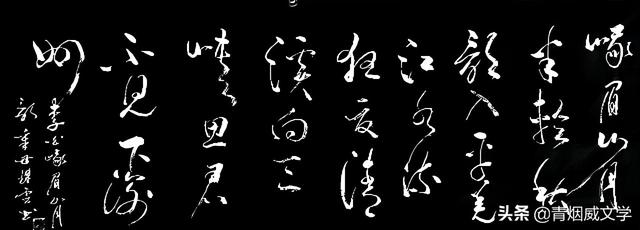 峨眉山月
半輪秋
影入平羌
江水流
夜發清
溪向三
峽思君
不見下渝
州
李白峨眉山月
歌
头条 @青烟威文学